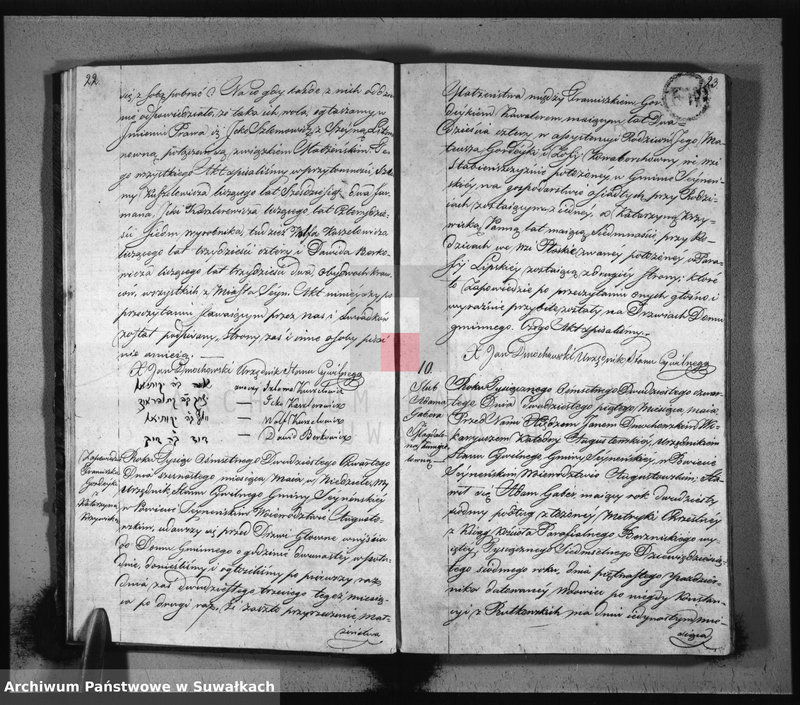 22
się z sobą pobrać? Na co gdy każde z nich oddziel
nie odpowiedziało, iż taka ich wola, ogłaszamy w
Imieniu Prawa iż Jcko Szlomowicz z Szejną
połączeni są związkiem Małżeńskim. Te
go wszystkiego Akt spisaliśmy w przytomności Szlo
my Kuszelewicza liczącego lat Sześćdziesiąt dwa fur
mana, Jcki Kaszlerowicza liczącego lat Czterdzie
ści Siedem wyrobnika, tudzież Wolfa Karzelewicza
liczącego lat trzydzieści cztery i Dawida Berko
wicza liczącego lat trzydzieści dwa, obydwóch kraw
ców, wszystkich z Miasta Sejn. Akt niniejszy po
przeczytaniu stawiającym przez nas i świadków
został podpisany, strony zaś i inne osoby pisać
nie umieją.
X Jan Dmochowski Urzędnik Stanu Cywilnego
znaczy Szloma Kuszelewicz
— Jcko Kaszlerowicz
— Wolf Karzelewicz
— Dawid Berkowicz
Zapowiedź
Franciszka
Gordejki
z
Katarzyną
Krzywicką
Roku Tysiąc Ośmsetnego Dwudziestego Czwartego
Dnia szesnastego miesiąca Maia w Niedzielę My
Urzędnik Stanu Cywilnego Gminy Sejneńskiej
w Powiecie Sejneńskim Woiewództwie Augusto-
wskim, udawszy się przed Drzwi Głowne wnyiścia
do Domu Gminnego o godzinie dwunastey w połu
dnie, donieśliśmy i ogłosiliśmy po pierwszy raz
dnia zaś dwudziestego trzeciego tegoż miesią
ca po drugi raz, iż zaszło przyrzeczenie Mał
żeństwa
23
Małżeństwa między Franciszkiem Gor
dejkiem Kawalerem maiącym lat Dwa-
dzieścia cztery w assystencyi Rodziców Jego, Ma
teusza Gordejki i Zofij
położoney w Gminie Sejneń
skiey na gospodarstwie osiadłych przy Rodzi
cach zostaiącym z iedney, a Katarzyną Krzy
wicką Panną lat maiącą Siedmnaście, przy Ro-
dzicach we wsi zwaney położoney w Para
fij Lipskiey zostaiącą z drugiey strony; które
to Zapowiedzie po przeczytaniu onych głośno i
wyraźnie przybite zostały na Drzwiach Domu
gminnego. Czego Akt spisaliśmy.
X Jan Dmochowski Urzędnik Stanu Cywilnego
10.
Slub
Adama
Gabera
z
Magdale
ną
Roku Tysiącznego Ośmsetnego Dwudziestego czwar
tego Dnia dwudziestego piątego Miesiąca Maia
Przed Nami Xiędzem Janem Dmochowskim Wi
karyuszem Katedry Augustowskiey, Urzędnikiem
Stanu Cywilnego Gminy Sejneńskiey, w Powiecie
Sejneńskim Woiewództwie Augustowskim; Sta
wił się Adam Gaber maiący rok dwudziesty
siódmy podług złożoney Metryki Chrzestney
z Ksiąg Kościoła Parafialnego Berznickiego wy
iętey, Tysiącznego Siedmsetnego Dziewięćdziesią
tego siódmego roku, dnia piętnastego Paździer
nika datowaney, Wdowiec po niegdy Konstan
cyi z Rutkowskich na dniu iedynastym mie
siąca
Archiwum Państwowe w Suwałkach